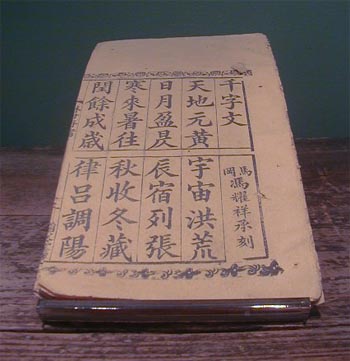 千字文
馬岡馮耀祥承刻
天地元黃
宇宙洪荒
日月盈昃
辰宿列張
寒來暑往
秋收冬藏
閏餘成歲
律呂調陽